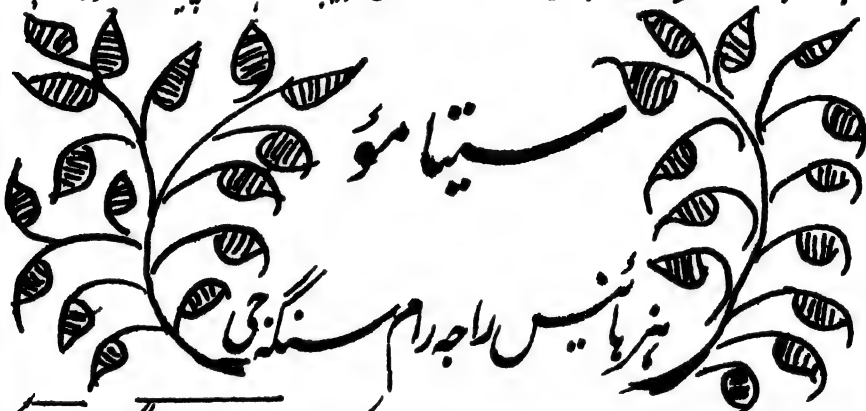 سیتامؤ
ہنر ہائینس راجہ رام سنگھ جی